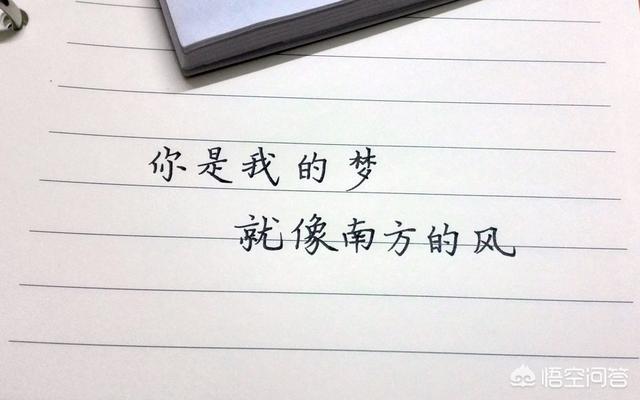 你是我的梦
就像南方的风
悟空问答